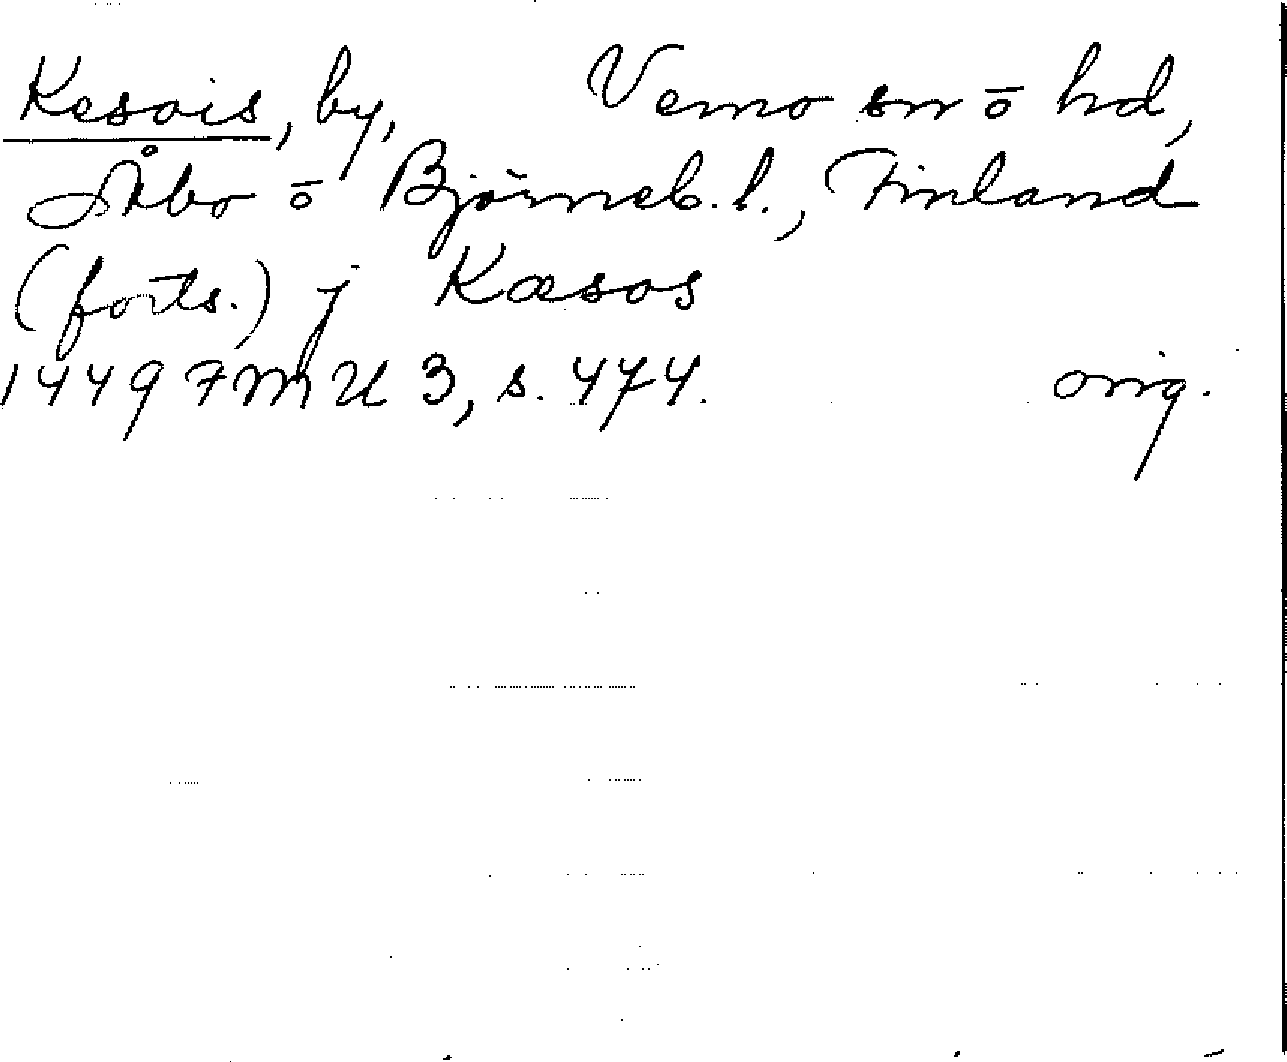 Kesois, by, Vemo sn ō hd,
Åbo ō Björneb. l., Finland
(forts.) j Kæsos
1449 FMU 3, s. 474. orig.